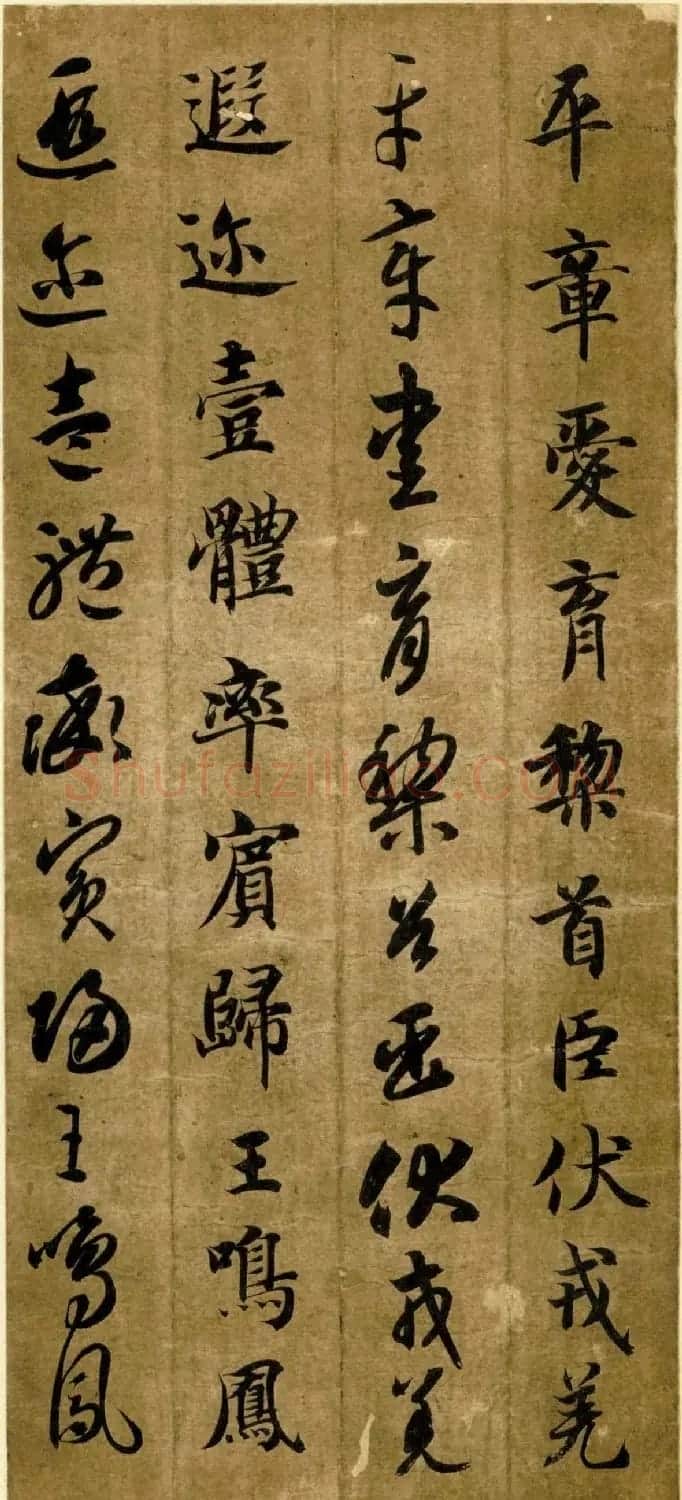 平章愛育黎首臣伏戎羌
平章愛育黎首臣伏戎羌
遐迩壹體率賓歸王鳴鳳
遐迩壹體率賓歸王鳴鳳
shufaziliao.com